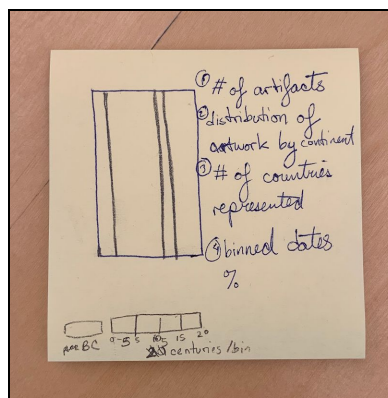 ① # of artifacts
② distribution of
artwork by continent
③ # of countries
represented
④ binned dates
%
pre BC 0-5 5 10 15 20
5 centuries/bin